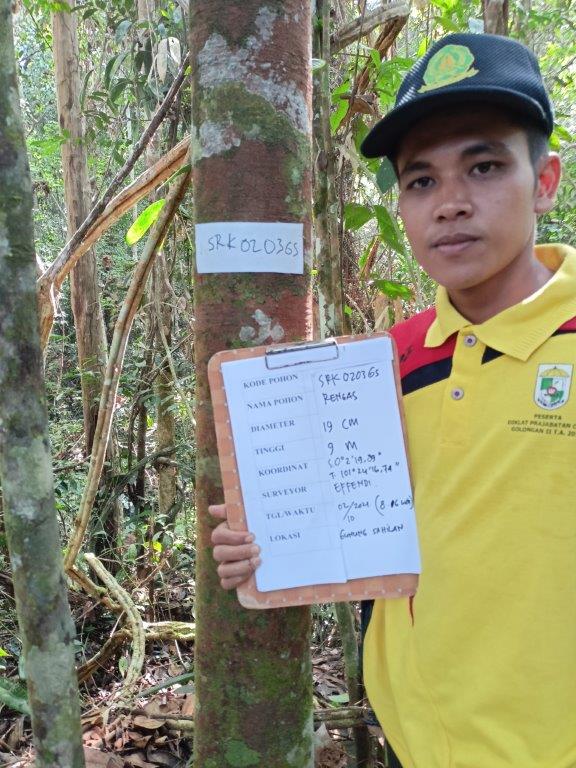 SRK02036S
KODE POHON SRK02036S
NAMA POHON RENGAS
DIAMETER 19 CM
TINGGI 9 M
KOORDINAT S 0°2'19,39" T 101°24'16,74"
SURVEYOR EFFENDI
TGL/WAKTU 02/10/2021
LOKASI GUNUNG SAHILAN
PESERTA
DIKLAT PRAJABATAN
GOLONGAN II T.A. 20